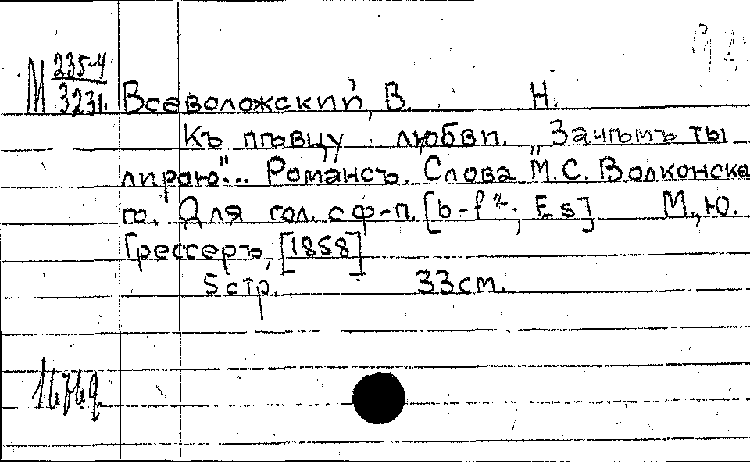 М 235-4
3231.
Всеволожский, В. Н.
Къ пѣвцу любви. „Зачѣмъ ты
лирою"... Романсъ. Слова М.С. Волконска
го. Для гол. с ф-п. [b-f²; Es] М., Ю.
Грессеръ, [1858]
5 стр. 33 см.